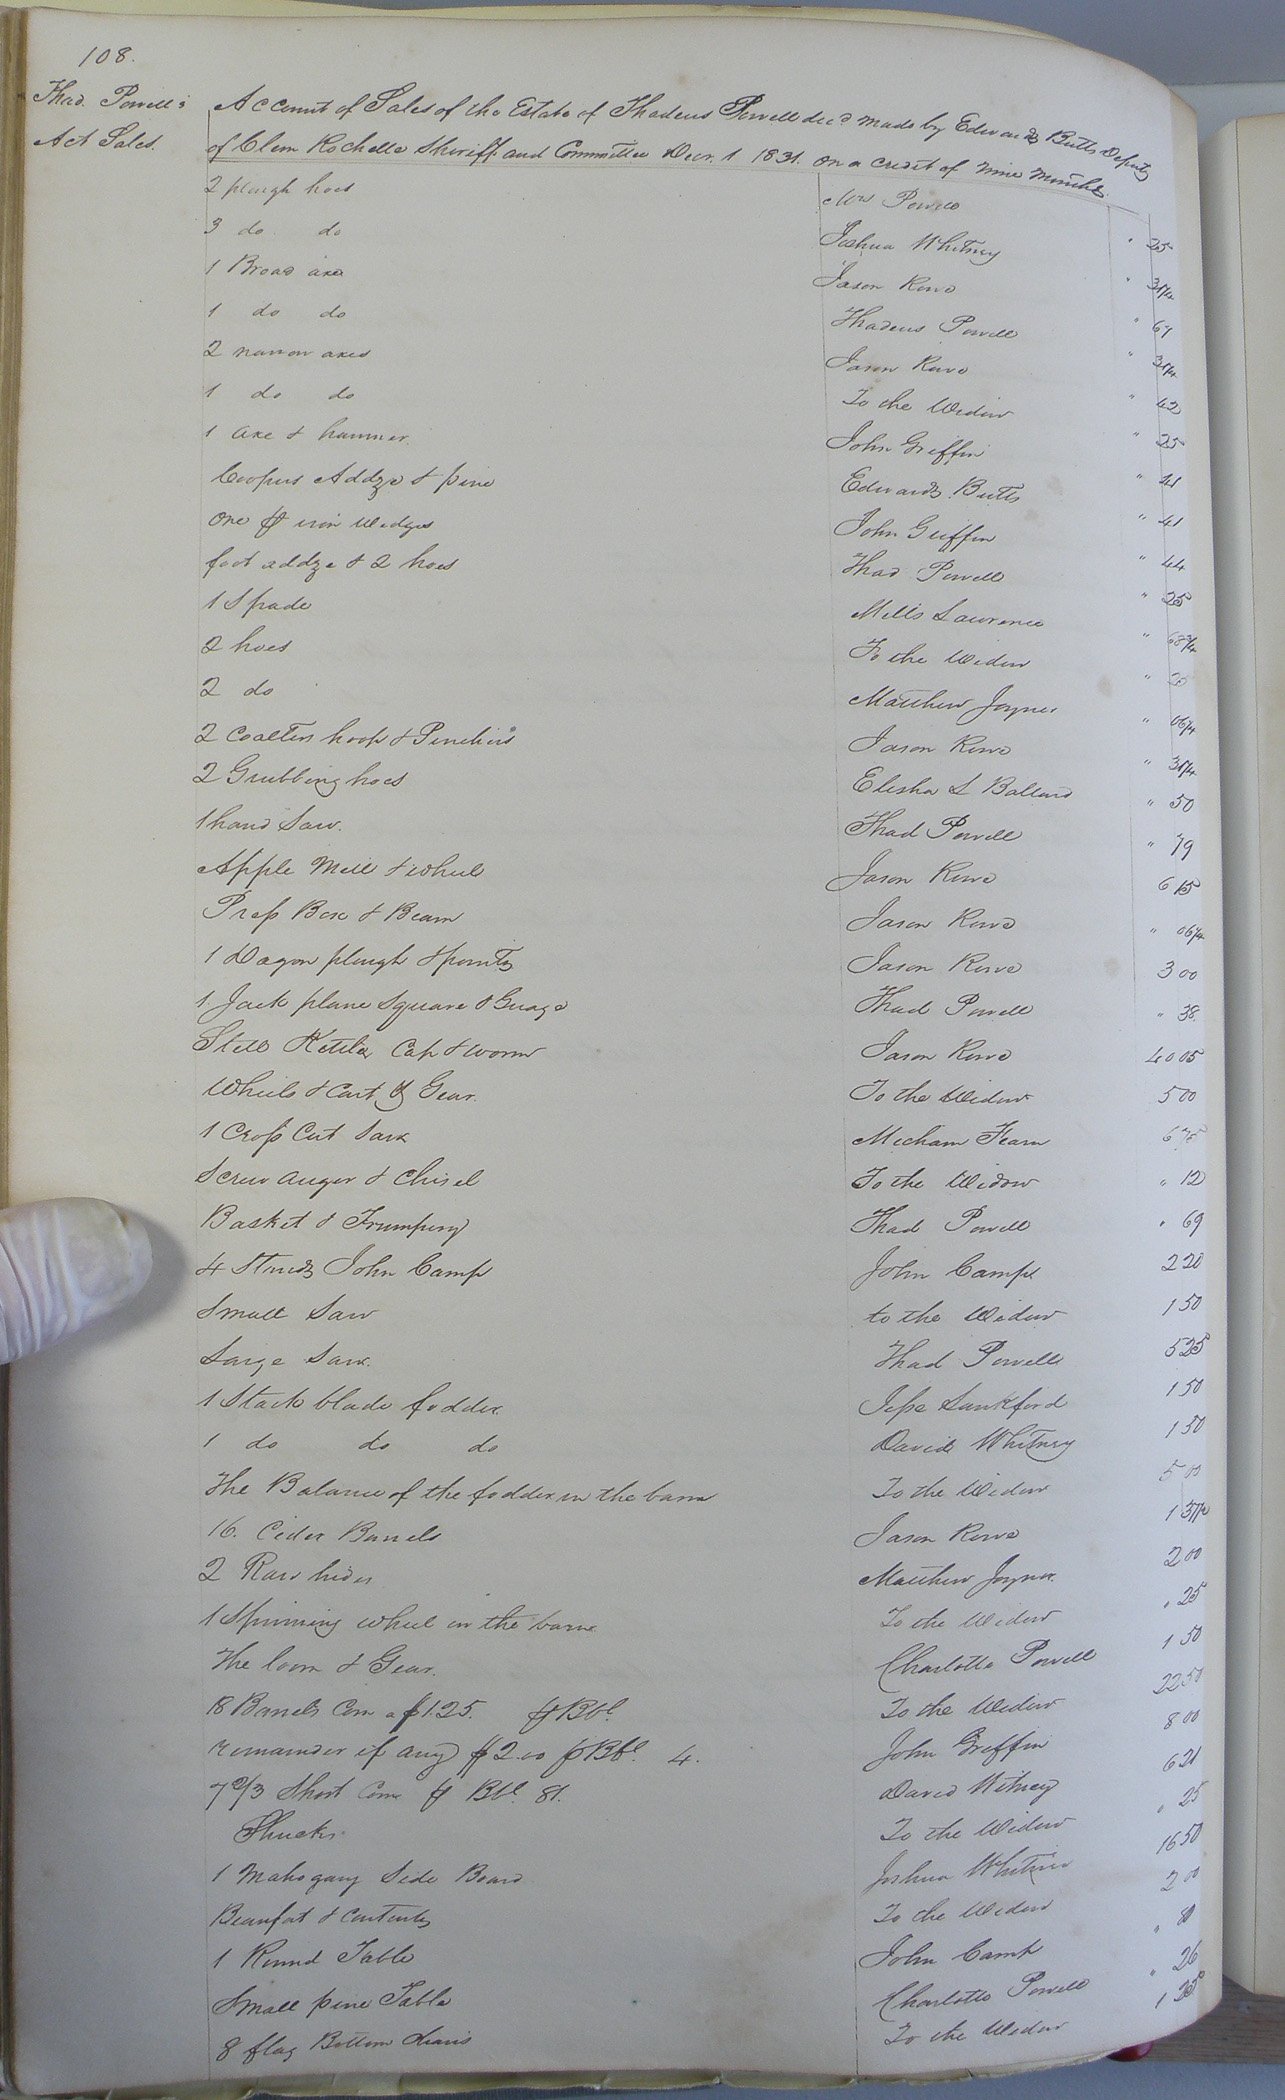 108.
Thad. Powell's
Act Sales.
Account of Sales of the Estate of Thadeus Powell decd made by Edwards Butts Deputy
of Clem Rochelle Sheriff and Committee Decr. 1 1831. on a credit of nine months.
2 plough hoes Mrs Powell " 25
3 do do Joshua Whitney " 31¼
1 Broad axe Jason Rowe " 67
1 do do Thadeus Powell " 31¼
2 narrow axes Jason Rowe " 42
1 do do To the Widow " 25
1 axe & hammer John Griffin " 21
Coopers Addze & Edwards Butts " 41
one iron wedges John Griffin " 44
foot addze & 2 hoes Thad Powell " 25
1 Spade Mills Lawrence " 68¾
2 hoes To the Widow " 25
2 do Matthew Joyner " 06¼
2 Coalters hoop & Jason Rowe " 31¼
2 Grubbing hoes Elisha L Ballard " 50
1 hand Saw. Thad Powell " 79
Apple Mill & wheel Jason Rowe 6 15
Press Box & Beam Jason Rowe " 06¼
1 Dagon plough & points Jason Rowe 3 00
1 Jack plane Square & Guage Thad Powell " 38
Still Kettle Cap & worm Jason Rowe 40 05
Wheels & Cart & Gear. To the Widow 5 00
1 Cross Cut Saw Mecham Fearn 6 75
Screw auger & Chisel To the Widow " 12
Basket & Trumpery Thad Powell " 69
4 Stands John Camp John Camp 2 20
Small Saw to the Widow 1 50
Large Saw. Thad Powell 5 25
1 Stack blade fodder Jesse Lankford 1 50
1 do do do David Whitney 1 50
The Balance of the fodder in the barn To the Widow 5 00
16. Cider Barrels Jason Rowe 1 37½
2 Raw hides Matthew Joyner 2 00
1 Spinning wheel in the barn To the Widow " 25
The loom & Gear. Charlotte Powell 1 50
18 Barrels Corn a $1.25. ⅌ Bbl. To the Widow 22 50
remainder if any $2.00 ⅌ Bbl. 4. John Griffin 8 00
7 2/3 Short Corn ⅌ Bbl. 81. David Witney 6 21
Shucks To the Widow " 25
1 Mahogany Side Board Joshua Whitney 16 50
Beaufat & Contents To the Widow 2 00
1 Round Table John Camp " 80
Small pine Table Charlotte Powell " 26
8 flag Bottom Chairs To the Widow 1 25